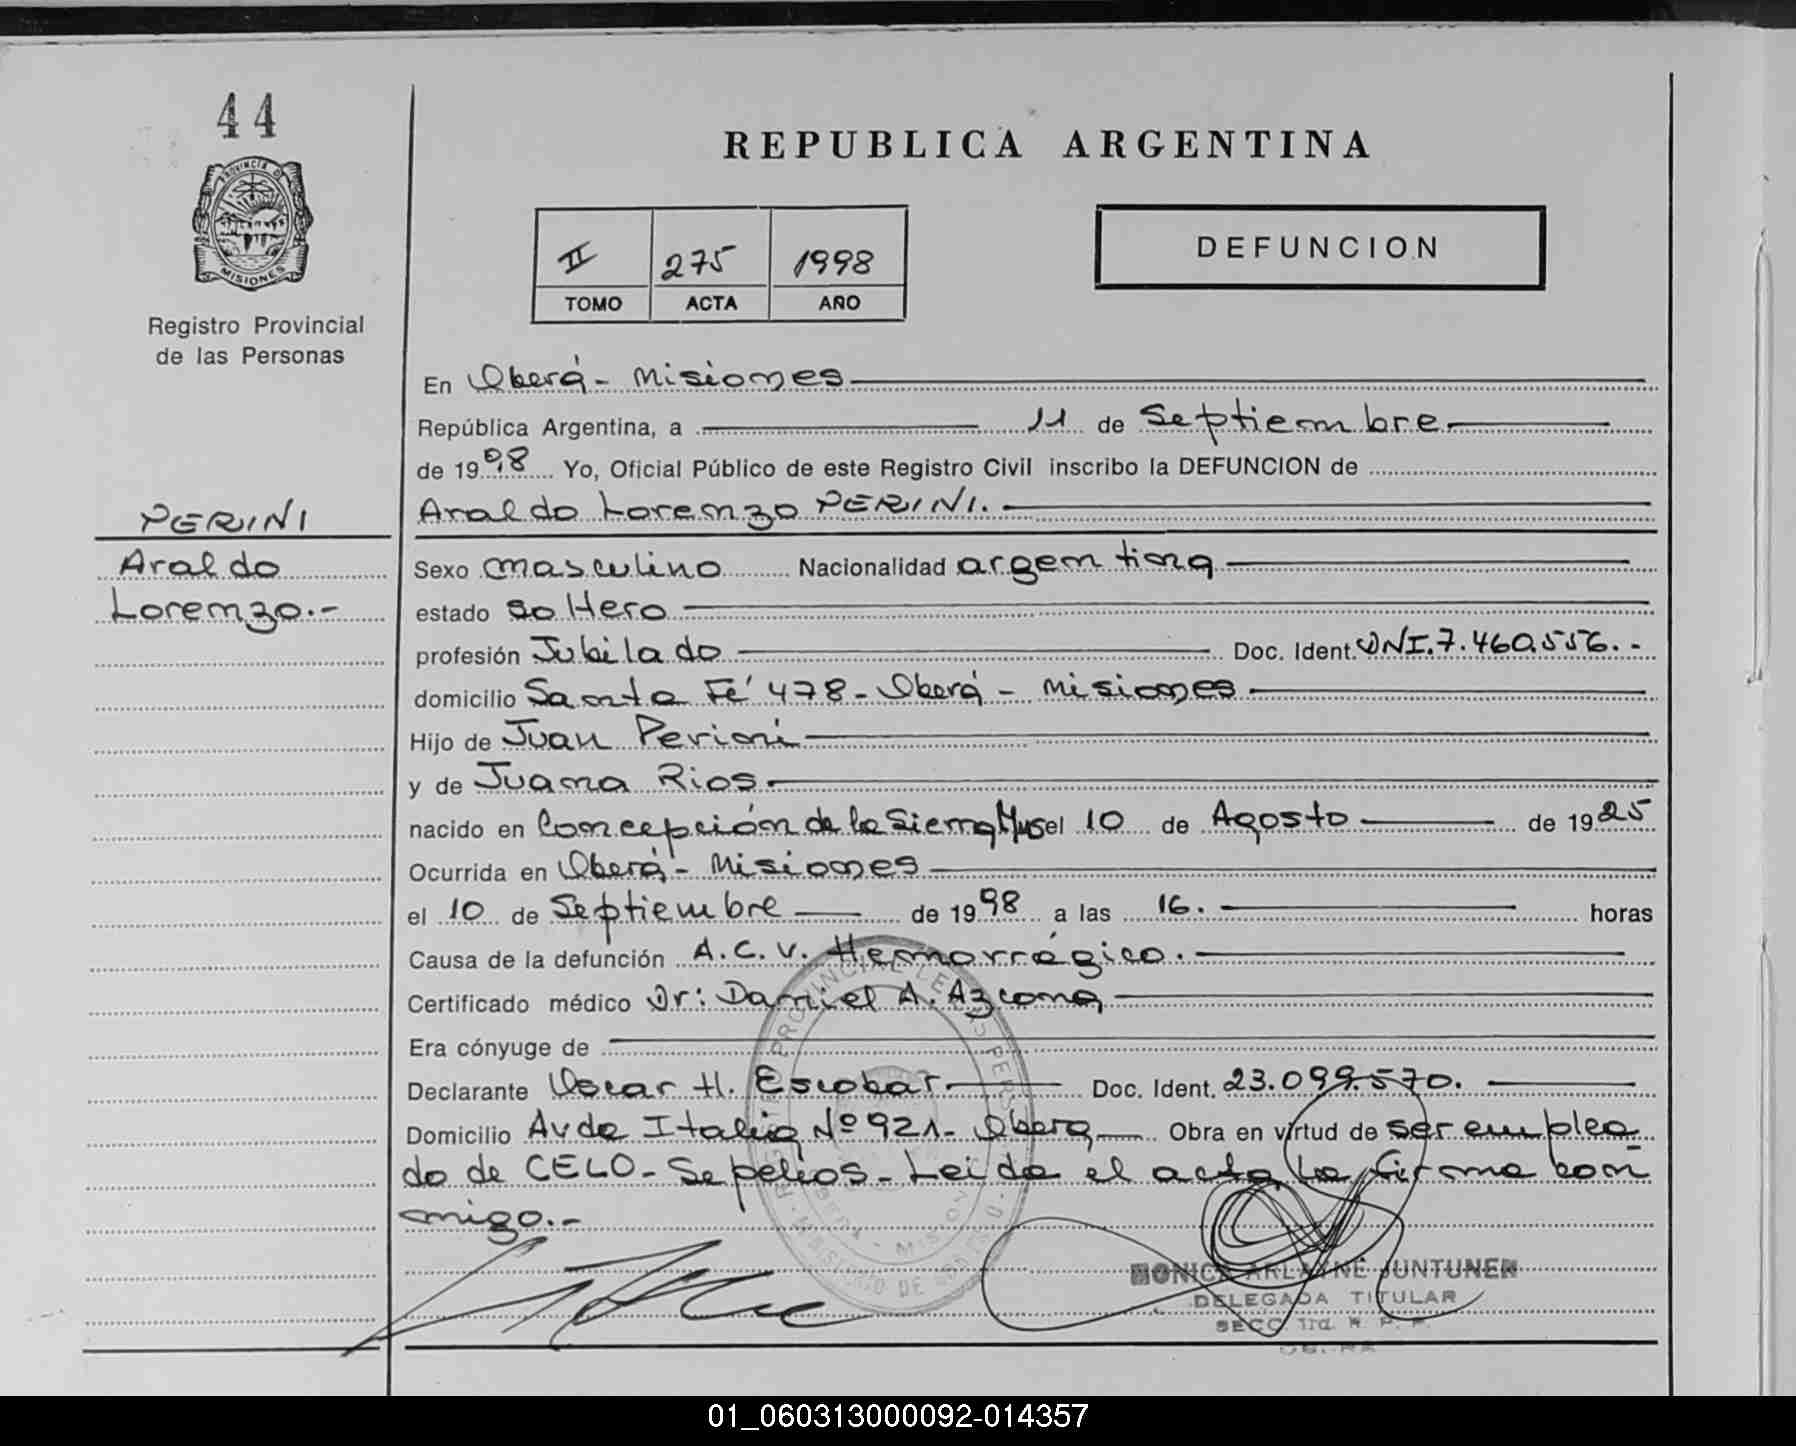 44
PROVINCIA DE
MISIONES
Registro Provincial
de las Personas
REPUBLICA ARGENTINA
II 275 1998
TOMO ACTA AÑO
DEFUNCION
PERINI
Araldo
Lorenzo.-
En Oberá - Misiones
República Argentina, a 11 de Septiembre
de 1998 Yo, Oficial Público de este Registro Civil inscribo la DEFUNCION de
Araldo Lorenzo PERINI.
Sexo masculino Nacionalidad argentina
estado soltero
profesión Jubilado Doc. Ident. DNI.7.460.556.-
domicilio Santa Fé 478 - Oberá - Misiones
Hijo de Juan Perini
y de Juana Rios.
nacido en Concepción de la Sierra Mns el 10 de Agosto de 1925
Ocurrida en Oberá - Misiones
el 10 de Septiembre de 1998 a las 16. horas
Causa de la defunción A.C.V. Hemorrágico.
Certificado médico Dr: Daniel A. Azcona
Era cónyuge de
Declarante Oscar H. Escobar Doc. Ident. 23.099.570.
Domicilio Avda Italia Nº 921 - Oberá Obra en virtud de ser emplea-
do de CELO - Sepelios - Leida el acta la firma con
migo.-
MONICA ARLAYNE JUNTUNEN
DELEGADA TITULAR
SECC. 1ra. R. P. P.
OBERA
01_060313000092-014357